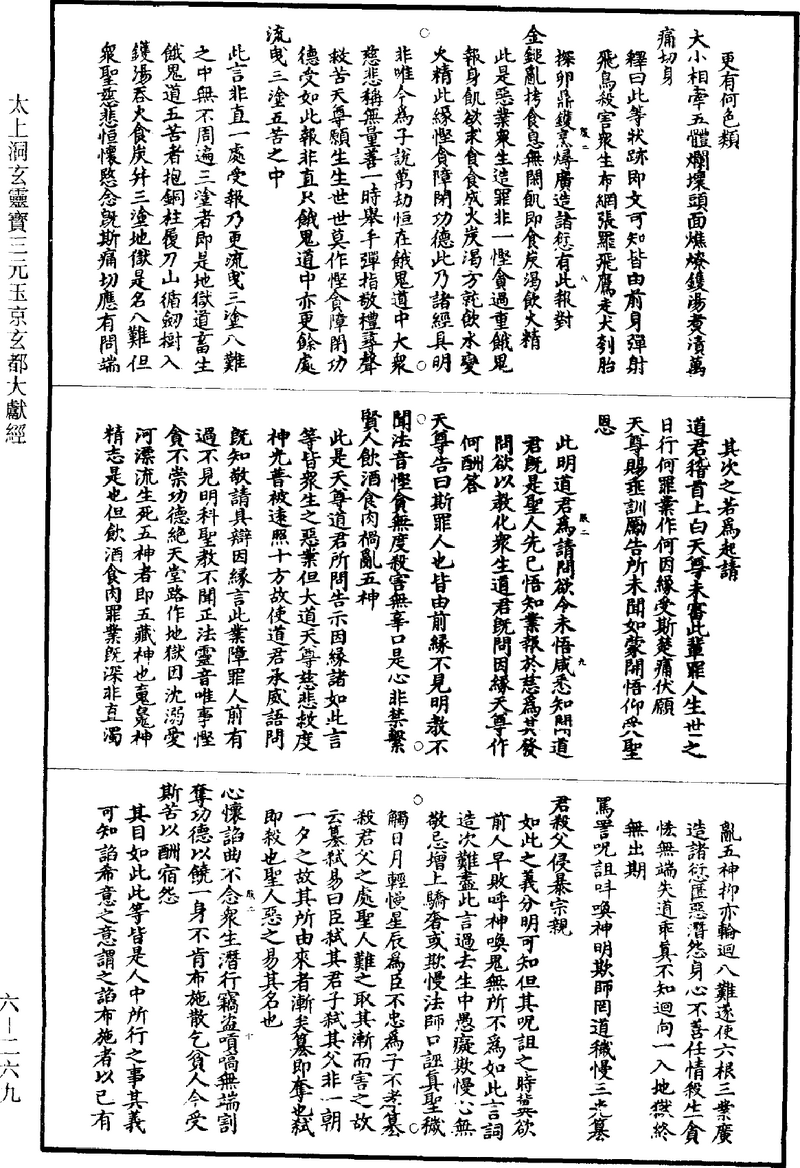 更有何色類
大小相牽五體爛壞頭面燋燎鑊湯煑漬萬
痛切身
釋曰此等狀跡即文可知皆由前身彈射
飛鳥殺害衆生布網張羅飛鷹走犬刳胎
探卵鼎鑊烹燖廣造諸𠍴有此報對
金鎚亂拷食息無閑飢即食炭渴飲火精
此是惡業衆生造罪非一慳貪過重餓鬼
報身飢欲求食食成火炭渴方就飲水變
火精此緣慳貪障閉功德此乃諸經具明
非唯今爲子說萬劫恒在餓鬼道中大衆
慈悲稱無量善一時舉手彈指敬禮尋聲
救苦天尊願生生世世莫作慳貪障閉功
德受如此報非直只餓鬼道中亦更餘處
流曳三塗五苦之中
此言非直一處受報乃更流曳三塗八難
之中無不周遍三塗者即是地獄道畜生
餓鬼道五苦者抱銅柱履刀山循劒樹入
鑊湯吞火食炭并三塗地獄是名八難但
衆聖慈悲恒懷愍念旣斯痛切應有問端
其次之若爲起請
道君稽首上白天尊未審此輩罪人生世之
日行何罪業作何因緣受斯楚痛伏願
天尊賜垂訓勵告所未聞如蒙開悟仰荷聖
恩
此明道君爲請問欲令未悟咸悉知聞道
君旣是聖人先已悟知業報於慈爲其發
問欲以教化衆生道君旣問因緣天尊作
何酬答
天尊告曰斯罪人也皆由前緣不見明教不
聞法音慳貪無度殺害無辜口是心非禁繫
賢人飲酒食肉禍亂五神
此是天尊道君所問告示因緣諸如此言
等皆衆生之惡業但大道天尊慈悲救度
神光普被遠照十方故使道君承威語問
旣知敬請具辯因緣言此業障罪人前有
過不見明科聖教不聞正法靈音唯事慳
貪不崇功德絶天堂路作地獄因沈溺愛
河漂流生死五神者即五藏神也魂魄神
精志是也但飲酒食肉罪業旣深非直濁
亂五神抑亦輪迴八難遂使六根三業廣
造諸𠍴匿惡潛怨身心不善任情殺生貪
恡無端失道乖真不知迴向一入地獄終
無出期
罵詈呪詛呌喚神明欺師罔道穢慢三光篡
君殺父侵暴宗親
如此之義分明可知但其呪詛之時冀欲
前人早敗呼神喚鬼無所不爲如此言詞
造次難盡此言過去生中愚癡欺慢心無
敬忌增上驕奢或欺慢法師口誣真聖穢
觸日月輕慢星辰爲臣不忠爲子不孝篡
殺君父之處聖人難之取其漸而害之故
云篡弑易曰臣弑其君子弑其父非一朝
一夕之故其所由來者漸矣篡即奪也弑
即殺也聖人惡之易其名也
心懷諂曲不念衆生潛行竊盜嗔嗃無端割
奪功德以饒一身不肯布施散乞貧人今受
斯苦以酬宿怨
其目如此此等皆是人中所行之事其義
可知諂希意之意謂之諂布施者以已有
太上洞玄靈寶三元玉京玄都大獻經
六—二六九